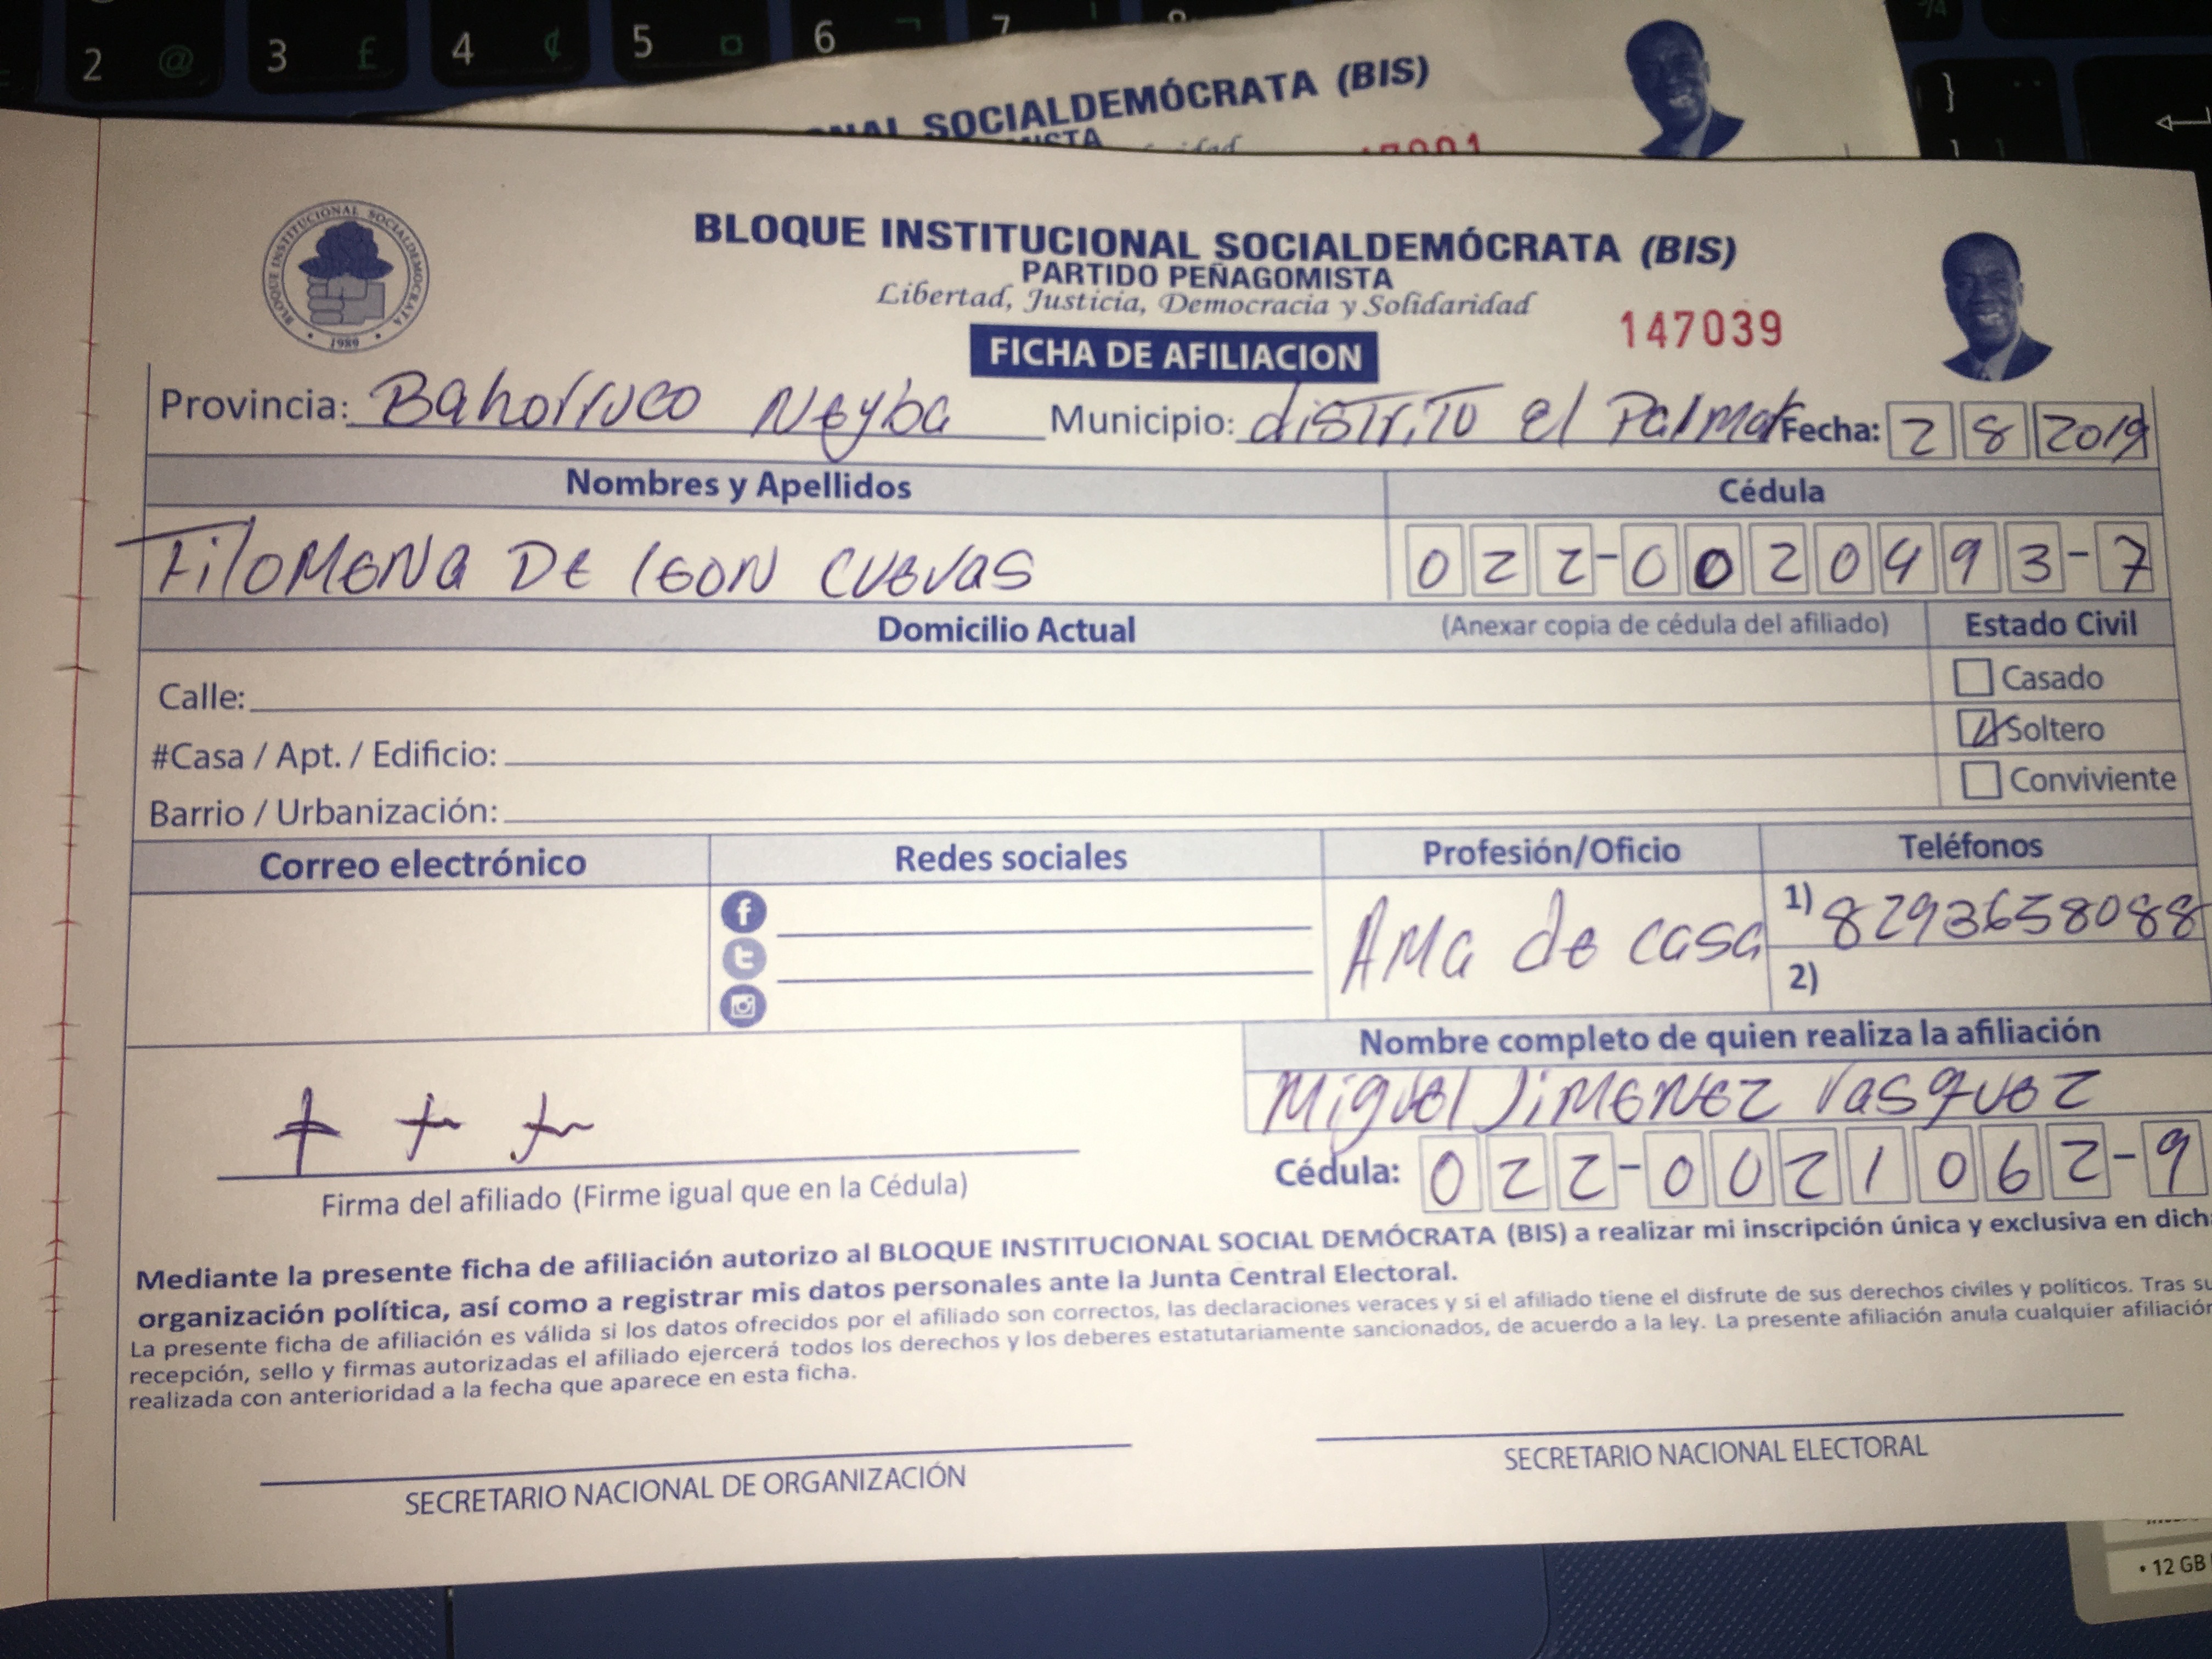 2 @ 3 £ 4 ¢ 5 ¤ 6 ¬ 7
SOCIALDEMÓCRATA (BIS)
BLOQUE INSTITUCIONAL SOCIALDEMOCRATA
1989
BLOQUE INSTITUCIONAL SOCIALDEMÓCRATA (BIS)
PARTIDO PEÑAGOMISTA
Libertad, Justicia, Democracia y Solidaridad
147039
FICHA DE AFILIACION
Provincia: Bahorruco Neyba Municipio: distrito el Palmar Fecha: 2 8 2019
Nombres y Apellidos Cédula
Filomena De leon cuevas 022-0020493-7
Domicilio Actual (Anexar copia de cédula del afiliado) Estado Civil
Calle: Casado
#Casa / Apt. / Edificio: Soltero
Barrio / Urbanización: Conviviente
Correo electrónico Redes sociales Profesión/Oficio Teléfonos
Ama de casa 1) 8293658088
2)
Nombre completo de quien realiza la afiliación
Miguel Jimenez Vasquez
Cédula: 022-0021062-9
Firma del afiliado (Firme igual que en la Cédula)
Mediante la presente ficha de afiliación autorizo al BLOQUE INSTITUCIONAL SOCIAL DEMÓCRATA (BIS) a realizar mi inscripción única y exclusiva en dich
organización política, así como a registrar mis datos personales ante la Junta Central Electoral.
La presente ficha de afiliación es válida si los datos ofrecidos por el afiliado son correctos, las declaraciones veraces y si el afiliado tiene el disfrute de sus derechos civiles y políticos. Tras su
recepción, sello y firmas autorizadas el afiliado ejercerá todos los derechos y los deberes estatutariamente sancionados, de acuerdo a la ley. La presente afiliación anula cualquier afiliación
realizada con anterioridad a la fecha que aparece en esta ficha.
SECRETARIO NACIONAL DE ORGANIZACIÓN SECRETARIO NACIONAL ELECTORAL
• 12 GB